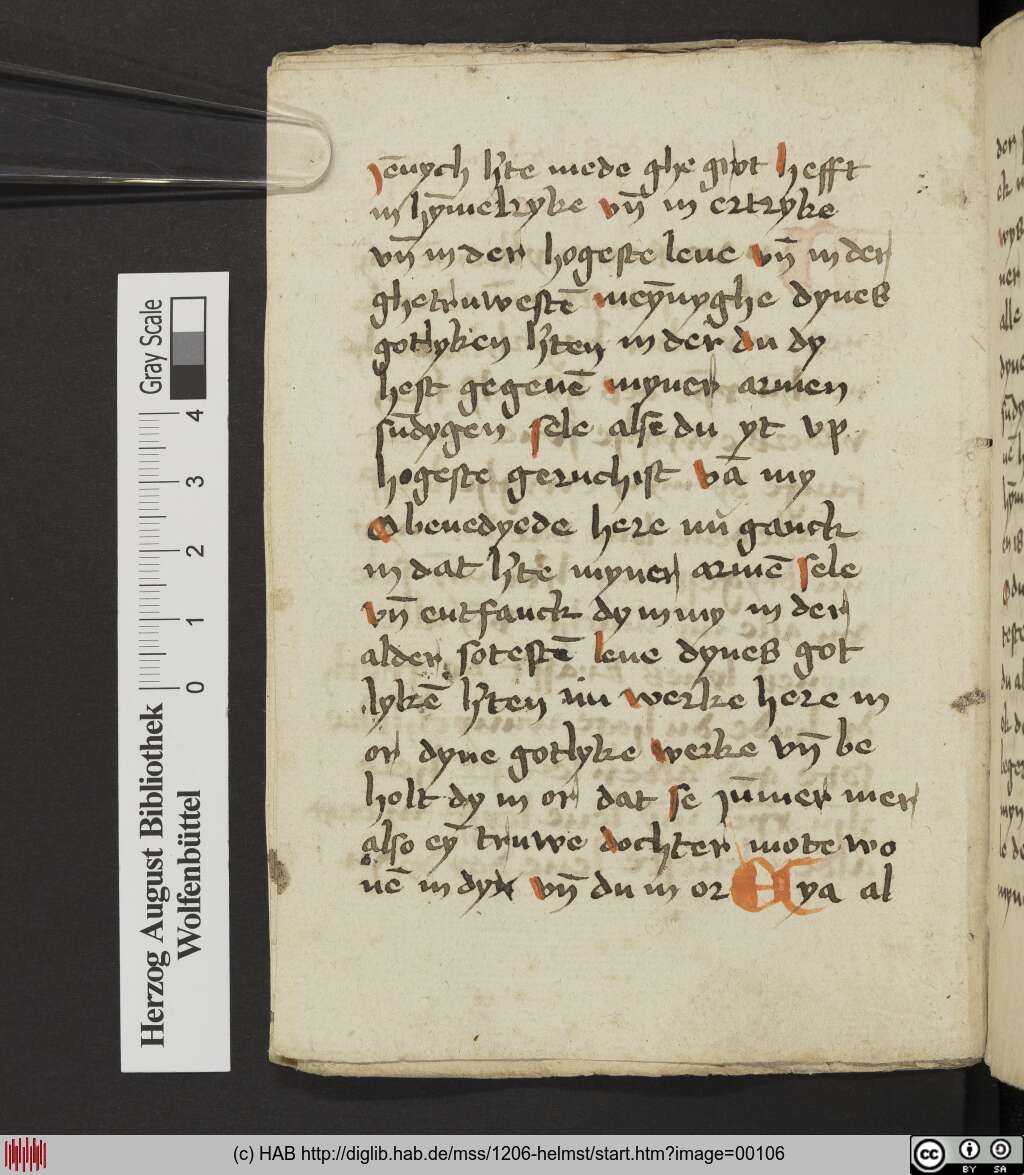 jēnych h̾te mede ghe grot hefft
in hȳmelryke vn̄ in ertryke
vn̄ in der hogeste leue vn̄ in der
ghetruwestē meȳnyghe dynes
gotlyken h̾ten in der du dy
hest gegeuē myner armen
sūdygen sele alse du yt vp
hogeste geruchist vā my
O benedyede here nu ganck
in dat h̾te myner armē sele
vn̄ entfanck dy in my in der
alder sotestē leue dynes got
lykē h̾ten nu werke here in
or dyne gotlyke werke vn̄ be
holt dy in or dat se jūmer mer
also eȳ truwe dochter mote wo
nē in dy vn̄ du in or Eya al
Herzog August Bibliothek
Wolfenbüttel
0 1 2 3 4
Gray Scale
(c) HAB http://diglib.hab.de/mss/1206-helmst/start.htm?image=00106
cc BY SA